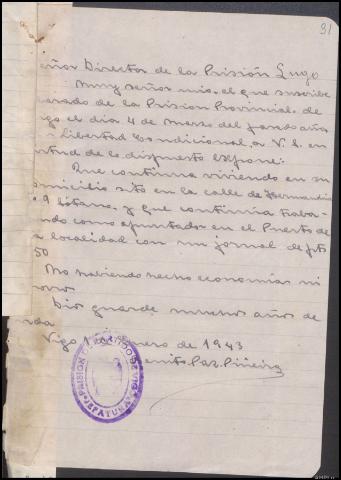 31
eñor Director de la Prisión Lugo
Muy señor mio, el que suscribe
erado de la Prision Provincial de
igo el dia 4 de Marzo del pasado años
Libertad Condicional, a V. S. en
rtud de lo dispuesto expone:
Que continua viviendo en su
omicilio sito en la calle de
9 Sótano, y que continúa traba-
ndo como apuntador en el Puerto de
a localidad con un jornal de pts
50
No habiendo hecho economías ni
orro
Dios guarde muchos años de
ida
Vigo 1 enero de 1943
enito Paz Piñeiro
PRISION DEL PARTIDO DE VIGO
JEFATURA